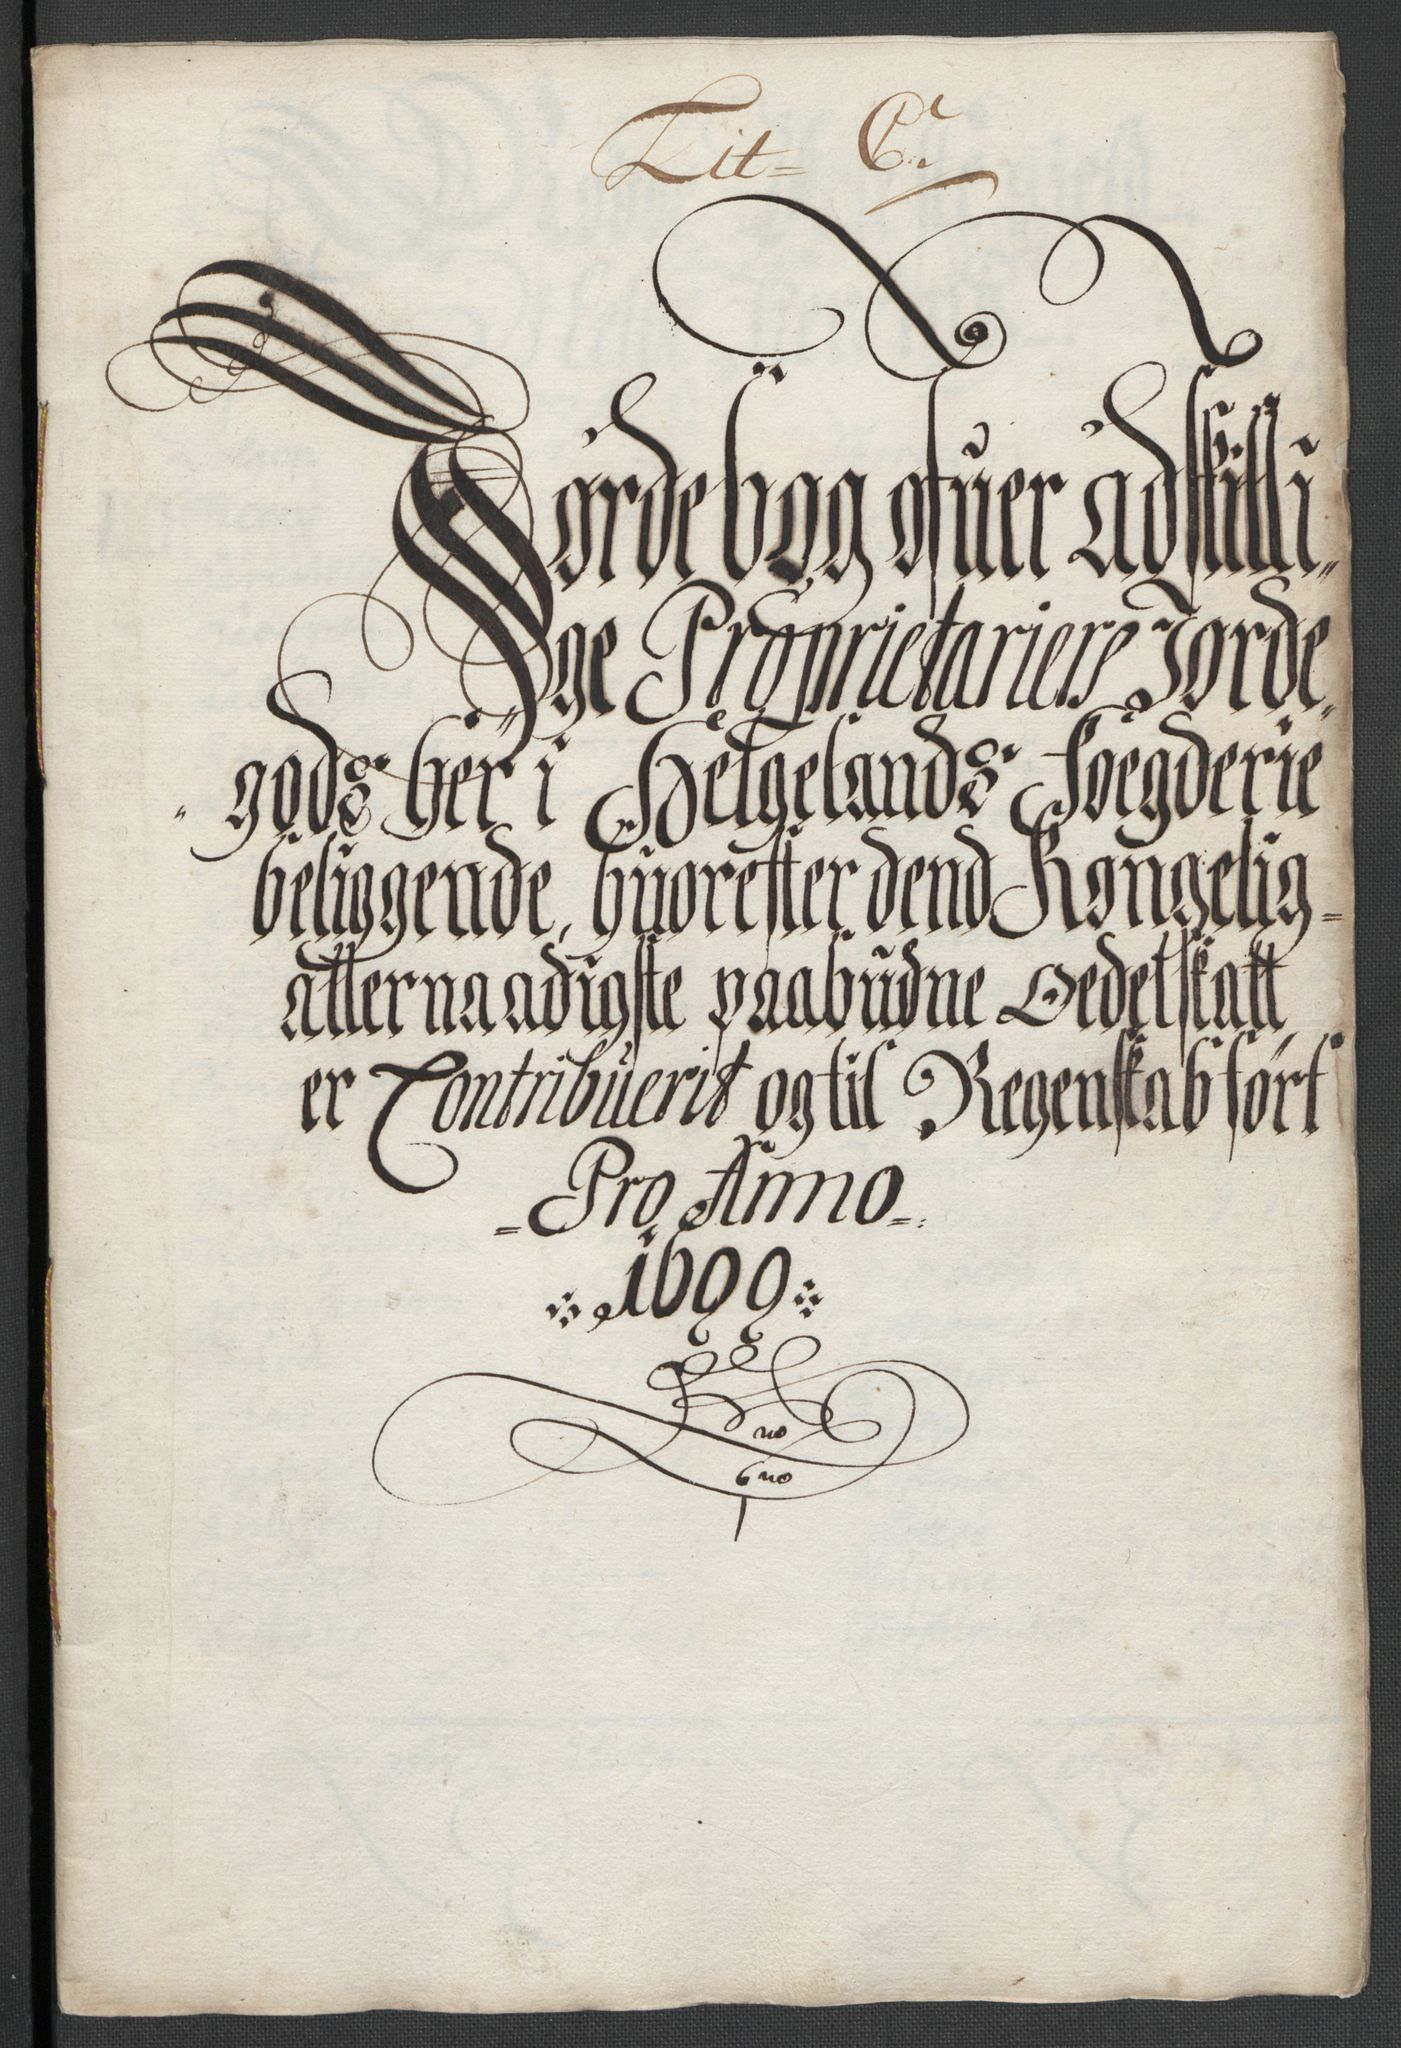 Lit= C.
Jordebog ofuer adskilli„
ge Proprietariers Jorde„
„gods her i Helgelands Foegderie
beliggende, huorefter dend Kongelig=
allernaadigste paabudne Oedelskatt
er Contribuerit og til Regenskab fört
=Pro Anno=
1699
no
6no